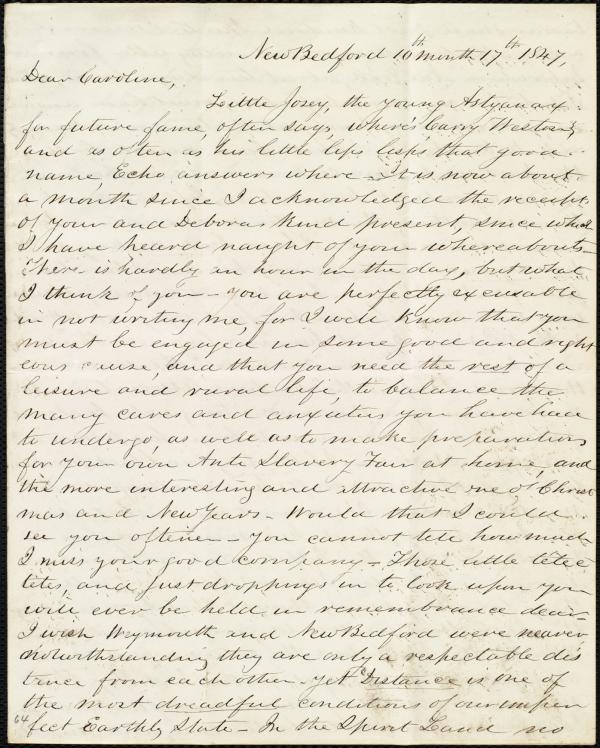 New Bedford 10th month 17th 1847,
Dear Caroline,
Little Josey, the young Astyanax
for future fame, often says, where's Carry Weston,
and as often as his little lips lisps that good
name, Echo answers where - It is now about
a month since I acknowledged the receipt
of your and Deboras kind present, since which
I have heard naught of your whereabouts -
There is hardly an hour in the day, but what
I think of you - you are perfectly excusable
in not writing me, for I well know that you
must be engaged in some good and right
eous cause, and that you need the rest of a
leisure and rural life, to balance the
many cares and anxieties you have had
to undergo, as well as to make preparations
for your own Anti Slavery Fair at home, and
the more interesting and attractive one of Christ
mas and New Years - Would that I could
see you oftener - you cannot tell how much
I miss your good company - Those little tete a
tetes, and just droppings in to look upon you
will ever be held in remembrance dear -
I wish Weymouth and New Bedford were nearer,
notwithstanding they are only a respectable dis
tance from each other - yet Distance is one of
the most dreadful conditions of our imper
64
fect Earthly State - In the Spirit Land no